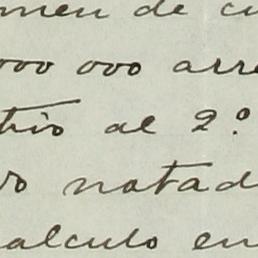 men de cu
000 000 arre
trio al 2º
vo notad
alculo en